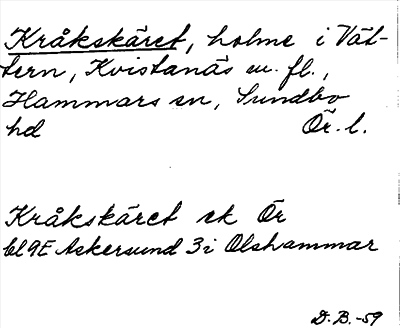 Kråkskäret, holme i Vät-
tern, Kvistanäs m. fl.,
Hammars sn, Sundbo
hd Ör. l.
Kråkskäret ek Ör
bl 9E Askersund 3i Olshammar
D. B. -59